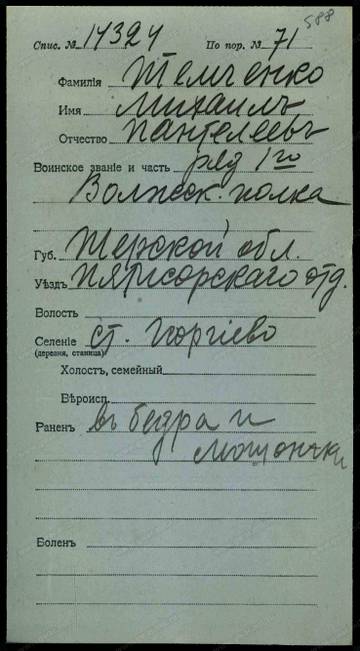 588
Спис. № 14324 По пор. № 71
Фамилія Темченко
Имя Михаилъ
Отчество Пантелеевъ
Воинское званіе и часть ряд 1го
Волжск. полка
Губ. Терской обл.
Уѣздъ Пятигорскаго отд.
Волость
Селеніе ст. Георгіево
(деревня, станица)
Холостъ, семейный
Вѣроисп.
Раненъ въ бедра и
мошонки
Боленъ